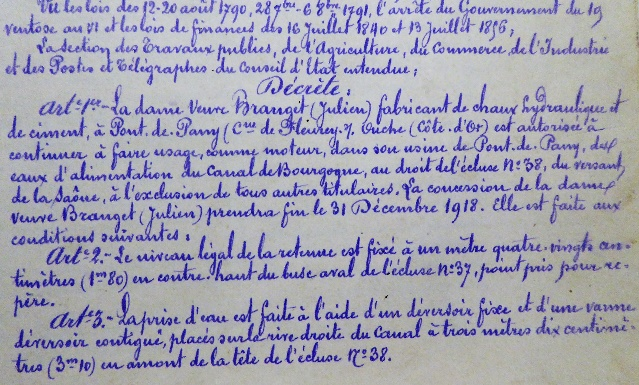 Vu les lois des 12-20 août 1790, 28 7bre-6 8bre 1791, l'arrêté du Gouvernement du 19
ventose an VI et les lois de finances des 16 Juillet 1840 et 13 Juillet 1856;
La Section des Travaux publics, de l'Agriculture, du Commerce, de l'Industrie
et des Postes et Télégraphes du Conseil d'Etat entendue;
Décrète:
Artcle 1er - La dame Veuve Branget (Julien) fabricant de chaux hydraulique et
de ciment, à Pont-de-Pany (Cne de Fleurey s/ Ouche (Côte-d'Or) est autorisée à
continuer à faire usage, comme moteur, dans son usine de Pont-de-Pany, des
eaux d'alimentation du Canal de Bourgogne, au droit de l'écluse No 38, du versant
de la Saône, à l'exclusion de tous autres titulaires. La concession de la dame
veuve Branget (Julien) prendra fin le 31 Décembre 1918. Elle est faite aux
conditions suivantes:
Artcle 2.- Le niveau légal de la retenue est fixé à un mètre quatre-vingts cen-
timètres (1m80) en contre-haut du busc aval de l'écluse No 37, point pris pour re-
père.
Artcle 3.- La prise d'eau est faite à l'aide d'un déversoir fixe et d'une vanne
déversoir contiguë, placés sur la rive droite du Canal à trois mètres dix centimè-
tres (3m10) en amont de la tête de l'écluse No 38.